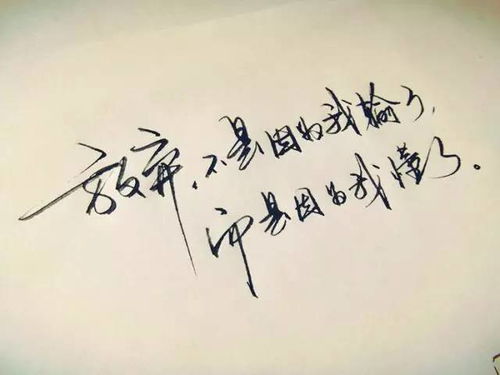 放弃，不是因为我输了，
而是因为我懂了。